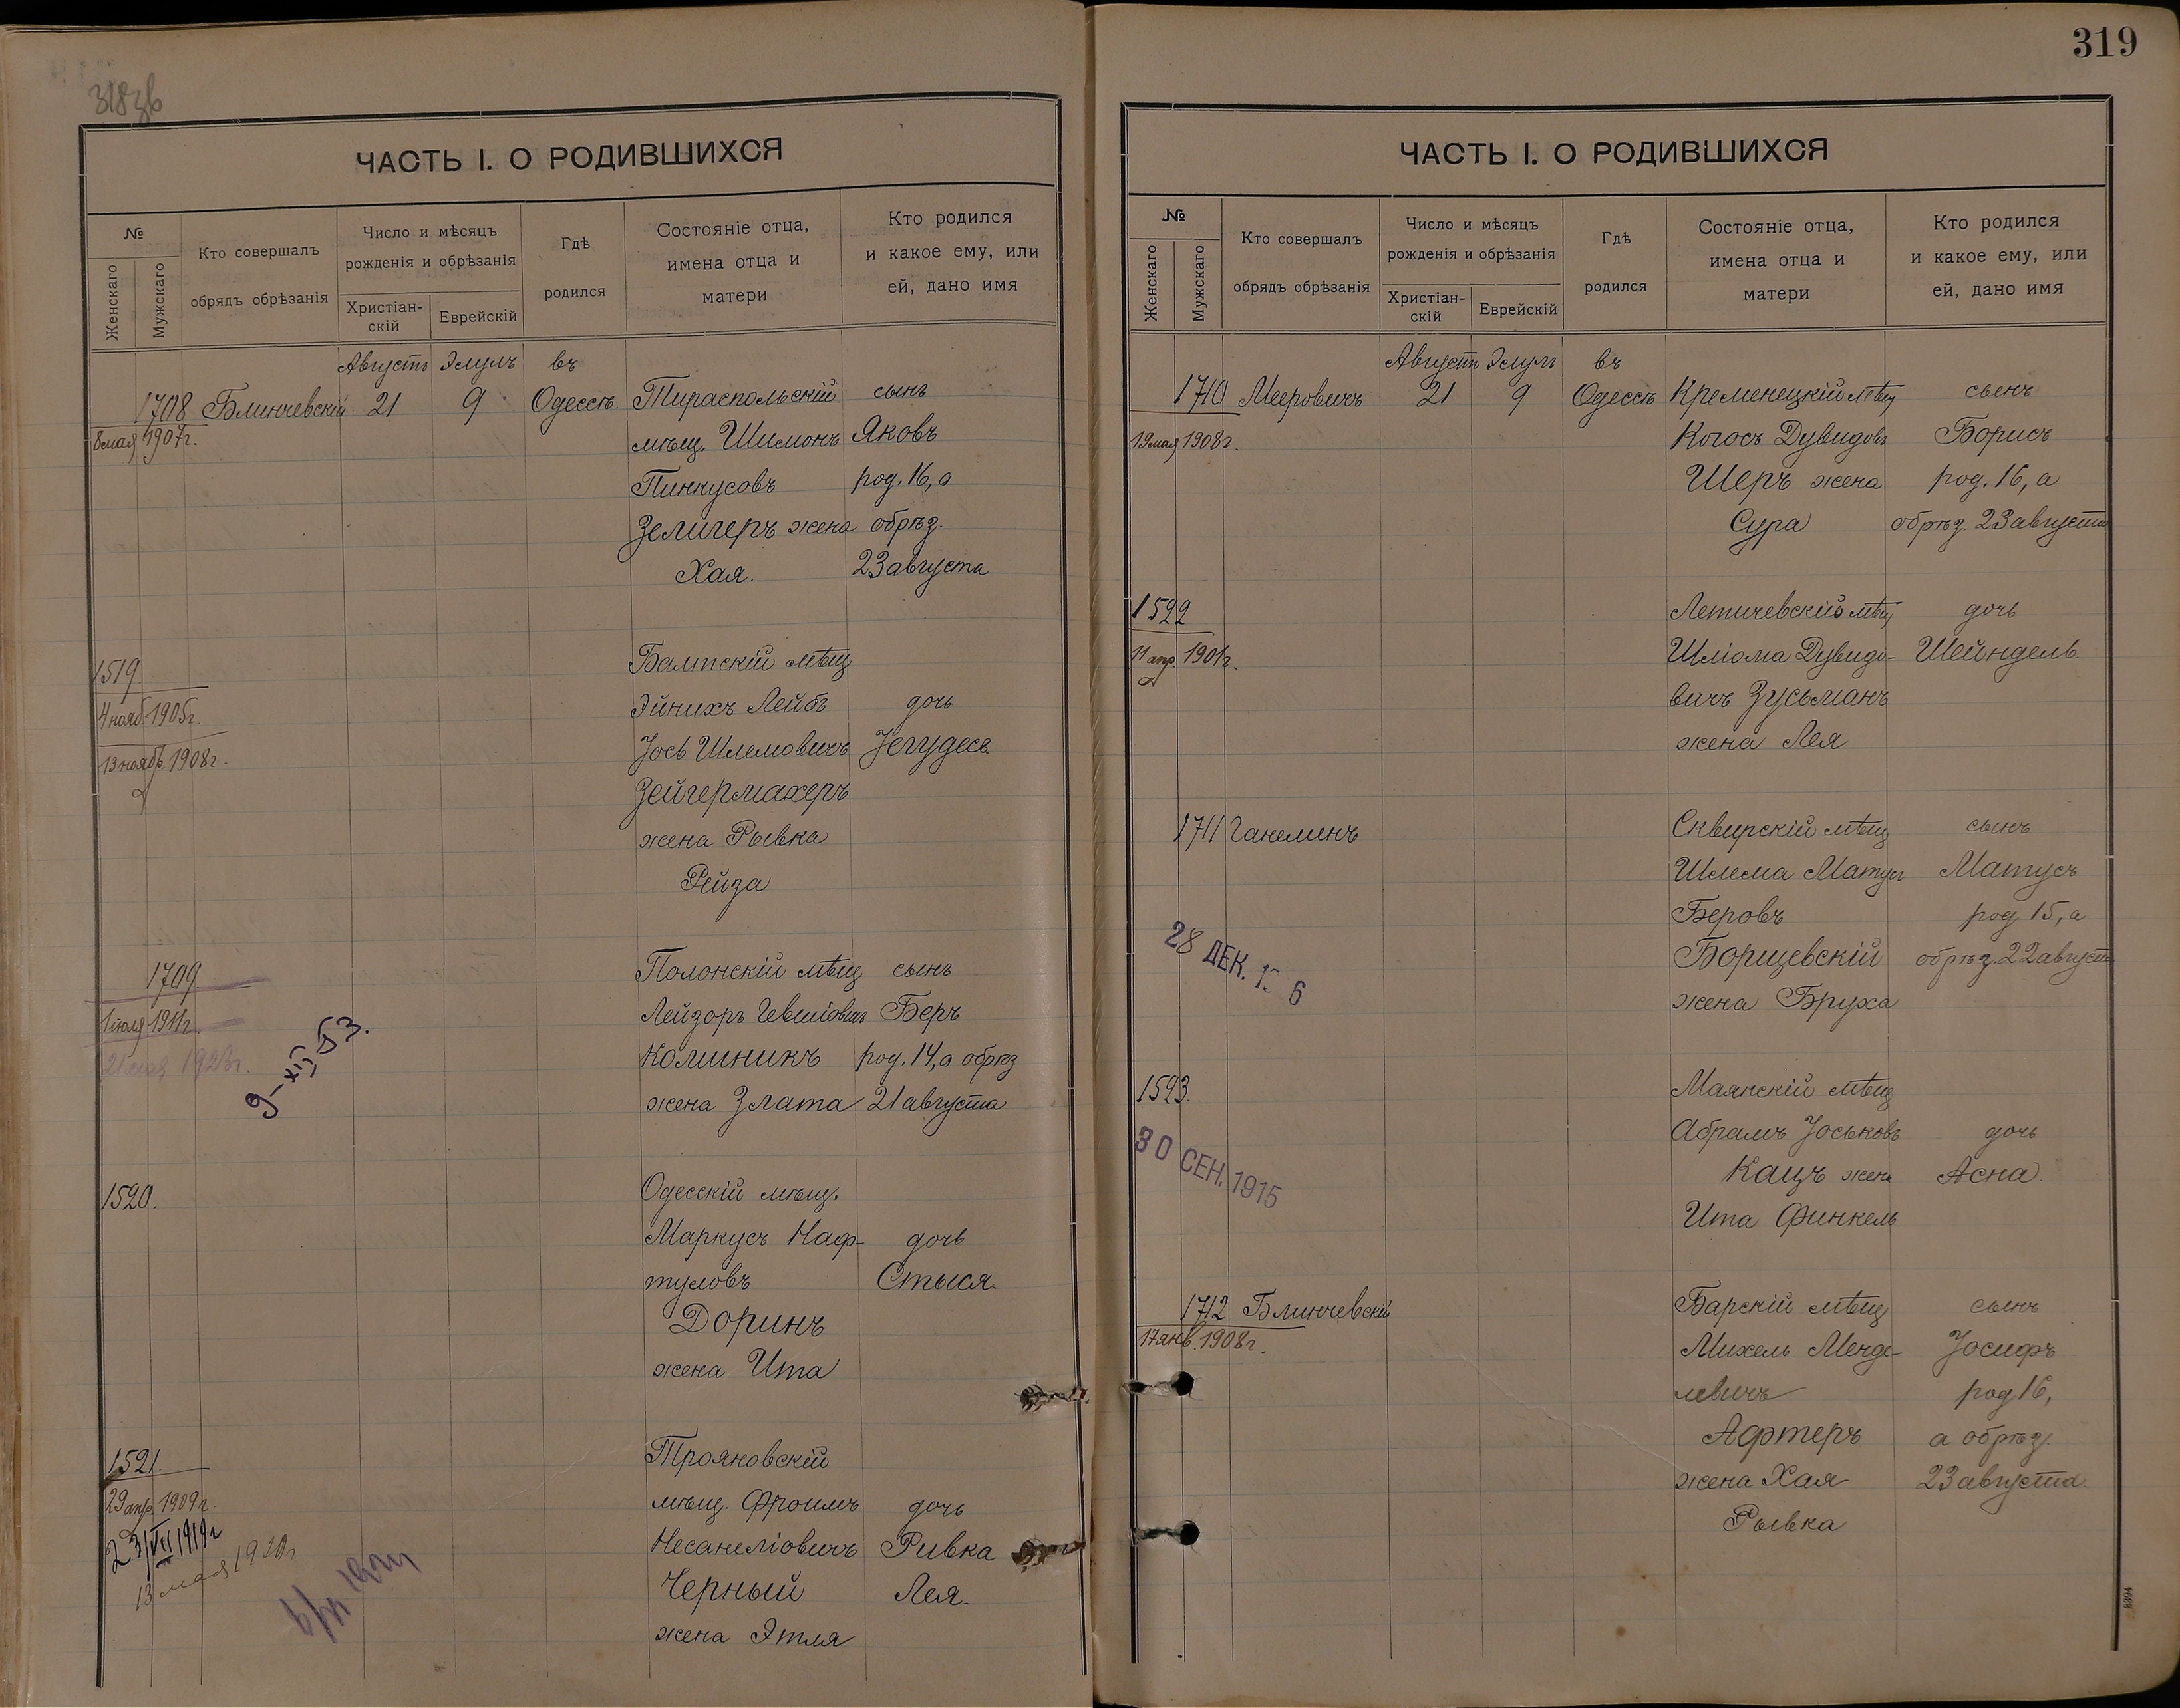 318зв
ЧАСТЬ I. О РОДИВШИХСЯ
№
Женскаго
Мужскаго
Кто совершалъ
обрядъ обрѣзанія
Число и мѣсяцъ
рожденія и обрѣзанія
Христіан-
скій
Еврейскій
Гдѣ
родился
Состояніе отца,
имена отца и
матери
Кто родился
и какое ему, или
ей, дано имя
Августъ Элулъ въ
1708 Блинчевскій 21 9 Одессѣ Тираспольскій сынъ
8 мая 1907г. мѣщ. Шимонъ Яковъ
Пинкусовъ род. 16, а
Зелигеръ жена обрѣз.
Хая. 23 августа
1519 Балтскій мѣщ
4 нояб. 1905г. Эйнихъ Лейбъ дочь
13 нояб. 1908г. Іось Шлемовичъ Іегудесъ
Зейгермахеръ
жена Рывка
Рейза
1709 Полонскій мѣщ сынъ
1 іюля 1911г. Лейзоръ Беръ
21 мая 1923г. Колиникъ род. 14, а обрѣз
9-XII-53. жена Злата 21 августа
1520. Одесскій мѣщ.
Маркусъ Наф- дочь
туловъ Стыся.
Доринъ
жена Ита
1521. Трояновскій
29 апр. 1909г. мѣщ. Фроимъ дочь
23/VII 1919г Несанеліовичъ Ривка
13 мая 1920г Черный Лея.
жена Этля
319
ЧАСТЬ I. О РОДИВШИХСЯ
№
Женскаго
Мужскаго
Кто совершалъ
обрядъ обрѣзанія
Число и мѣсяцъ
рожденія и обрѣзанія
Христіан-
скій
Еврейскій
Гдѣ
родился
Состояніе отца,
имена отца и
матери
Кто родился
и какое ему, или
ей, дано имя
Августъ Элулъ въ
1710 Мееровичъ 21 9 Одессѣ Кременецкій мѣщ сынъ
19 мая 1908г. Когосъ Дувидовъ Борисъ
Шеръ жена род. 16, а
Сура обрѣз. 23 августа
1522 Летичевскій мѣщ дочь
11 апр. 1901г. Шліома Дувидо- Шейндель
вичъ Зусьманъ
жена Лея
1711 Ганелинъ Сквирскій мѣщ сынъ
Шлема Матусъ Матусъ
Беровъ род 15, а
28 ДЕК. Борщевскій обрѣз. 22 августа
жена Бруха
1523. Маянскій мѣщ
Абрамъ Іоськовъ дочь
30 СЕН. 1915 Кацъ жена Асна.
Ита Финкель
1712 Блинчевскій Барскій мѣщ сынъ
17 янв. 1908г. Михель Менде- Іосифъ
левичъ род 16,
Афтеръ а обрѣз.
жена Хая 23 августа.
Рывка